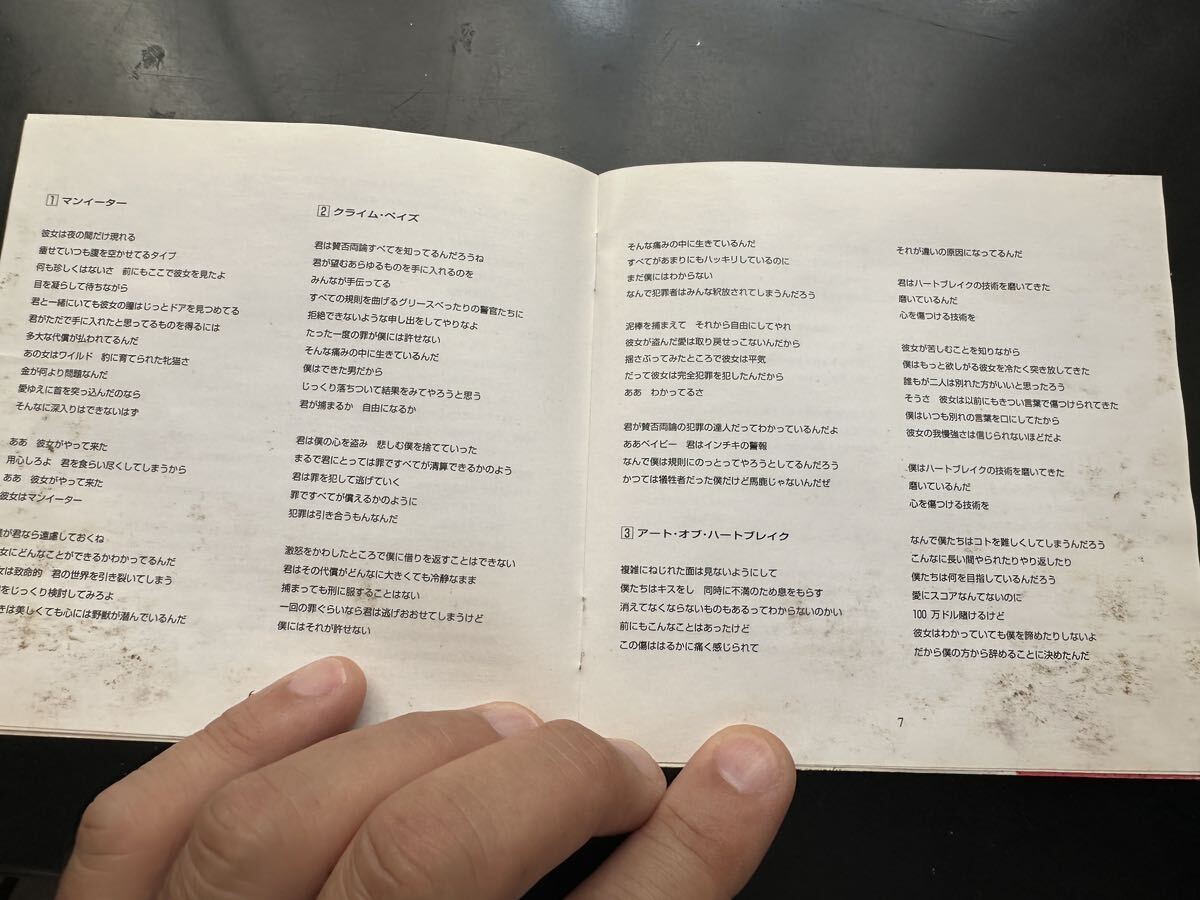 1 マンイーター
彼女は夜の間だけ現れる
痩せていつも腹を空かせてるタイプ
何も珍しくはないさ 前にもここで彼女を見たよ
目を凝らして待ちながら
君と一緒にいても彼女の瞳はじっとドアを見つめてる
君がただで手に入れたと思ってるものを得るには
多大な代償が払われてるんだ
あの女はワイルド 豹に育てられた牝猫さ
金が何より問題なんだ
愛ゆえに首を突っ込んだのなら
そんなに深入りはできないはず
ああ 彼女がやって来た
用心しろよ 君を食らい尽くしてしまうから
ああ 彼女がやって来た
彼女はマンイーター
が君なら遠慮しておくね
女にどんなことができるかわかってるんだ
は致命的 君の世界を引き裂いてしまう
をじっくり検討してみろよ
は美しくても心には野獣が潜んでいるんだ
2 クライム・ペイズ
君は賛否両論すべてを知ってるんだろうね
君が望むあらゆるものを手に入れるのを
みんなが手伝ってる
すべての規則を曲げるグリースべったりの警官たちに
拒絶できないような申し出をしてやりなよ
たった一度の罪が僕には許せない
そんな痛みの中に生きているんだ
僕はできた男だから
じっくり落ちついて結果をみてやろうと思う
君が捕まるか 自由になるか
君は僕の心を盗み 悲しむ僕を捨てていった
まるで君にとっては罪ですべてが清算できるかのよう
君は罪を犯して逃げていく
罪ですべてが償えるかのように
犯罪は引き合うもんなんだ
激怒をかわしたところで僕に借りを返すことはできない
君はその代償がどんなに大きくても冷静なまま
捕まっても刑に服することはない
一回の罪ぐらいなら君は逃げおおせてしまうけど
僕にはそれが許せない
そんな痛みの中に生きているんだ
すべてがあまりにもハッキリしているのに
まだ僕にはわからない
なんで犯罪者はみんな釈放されてしまうんだろう
泥棒を捕まえて それから自由にしてやれ
彼女が盗んだ愛は取り戻せっこないんだから
揺さぶってみたところで彼女は平気
だって彼女は完全犯罪を犯したんだから
ああ わかってるさ
君が賛否両論の犯罪の達人だってわかっているんだよ
ああベイビー 君はインチキの警報
なんで僕は規則にのっとってやろうとしてるんだろう
かつては犠牲者だった僕だけど馬鹿じゃないんだぜ
3 アート・オブ・ハートブレイク
複雑にねじれた面は見ないようにして
僕たちはキスをし 同時に不満のため息をもらす
消えてなくならないものもあるってわからないのかい
前にもこんなことはあったけど
この傷ははるかに痛く感じられて
それが違いの原因になってるんだ
君はハートブレイクの技術を磨いてきた
磨いているんだ
心を傷つける技術を
彼女が苦しむことを知りながら
僕はもっと欲しがる彼女を冷たく突き放してきた
誰もが二人は別れた方がいいと思ったろう
そうさ 彼女は以前にもきつい言葉で傷つけられてきた
僕はいつも別れの言葉を口にしてたから
彼女の我慢強さは信じられないほどだよ
僕はハートブレイクの技術を磨いてきた
磨いているんだ
心を傷つける技術を
なんで僕たちはコトを難しくしてしまうんだろう
こんなに長い間やられたりやり返したり
僕たちは何を目指しているんだろう
愛にスコアなんてないのに
100 万ドル賭けるけど
彼女はわかっていても僕を諦めたりしないよ
だから僕の方から辞めることに決めたんだ
7